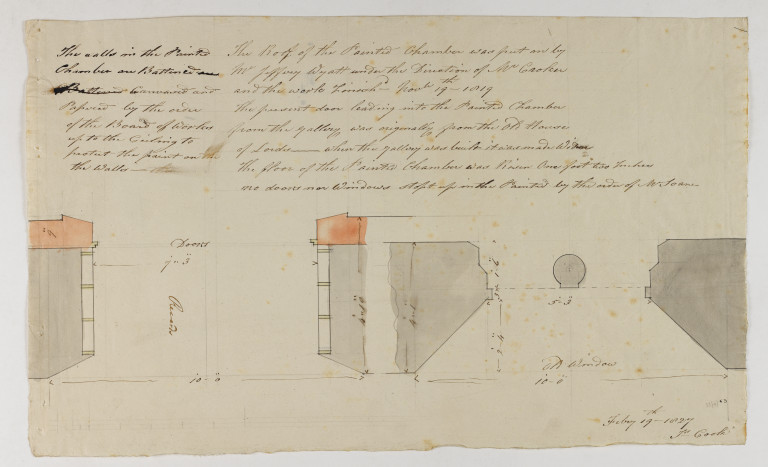 The walls in the Painted
Chamber are Battened and
Canvased and
Papered by the order
of the Board of Works
up to the Ceiling to
protect the paint on
the walls —
The Roff of the Painted Chamber was put on by
Mr Jeffrey Wyatt under the Direction of Mr Crocker
and the work Finish'd Novr 19th 1819
The present door leading into the Painted Chamber
from the Gallery was originally from the Old House
of Lordes — when the gallery was built it was made
the floor of the Painted Chamber was Risen One foot two Inches
no doors nor Windows stopt up in the Painted by the order of Mr Soane
Doors
10-0
5-3
Old Window
10-0
Feby 19th 1827